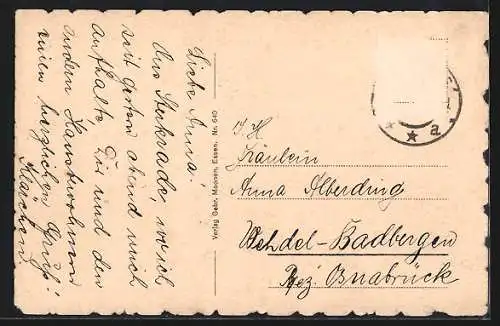 Liebe Anna!
Aus Sterkrade, wo ich
seit gestern abend mich
aufhalte, Dir und den
andern Hausbewohnern
einen herzlichen Gruß!
Käthchen.
Verlag Gebr. Moosen, Essen. Nr. 640
a
Fräulein
Anna Alberding
Wehdel-Badbergen
Bez. Osnabrück